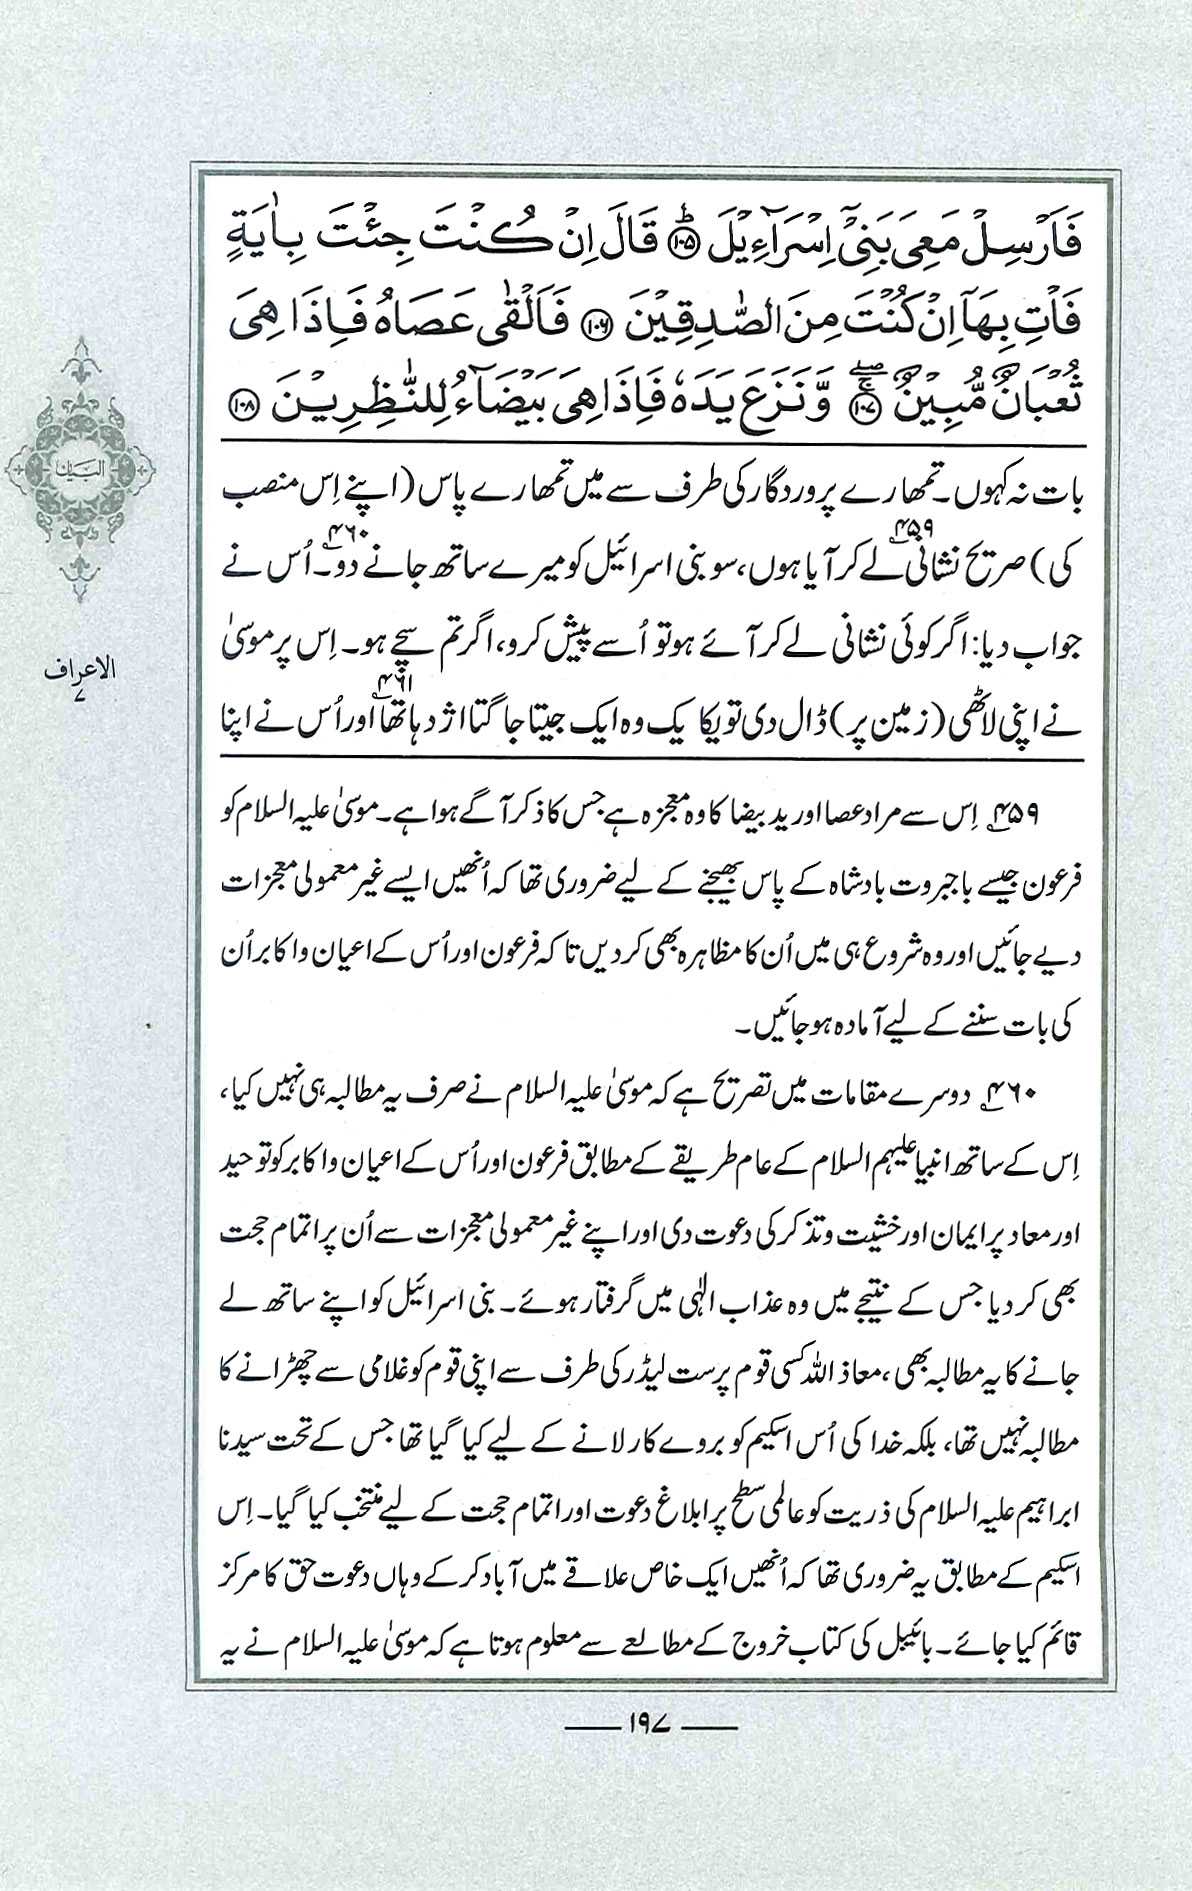 فَاَرْسِلْ مَعِیَ بَنِیْۤ اِسْرَآءِیْلَ ﴿۱۰۵﴾ؕ قَالَ اِنْ كُنْتَ جِئْتَ بِاٰیَةٍ
فَاْتِ بِهَاۤ اِنْ كُنْتَ مِنَ الصّٰدِقِیْنَ ﴿۱۰۶﴾ فَاَلْقٰی عَصَاهُ فَاِذَا هِیَ
ثُعْبَانٌ مُّبِیْنٌ ﴿۱۰۷﴾ۚۖ وَّ نَزَعَ یَدَهٗ فَاِذَا هِیَ بَیْضَآءُ لِلنّٰظِرِیْنَ ﴿۱۰۸﴾
بات نہ کہوں۔ تمھارے پروردگار کی طرف سے میں تمھارے پاس (اپنے اِس منصب
کی) صریح نشانی۴۵۹ لے کر آیا ہوں، سو بنی اسرائیل کو میرے ساتھ جانے دو۔۴۶۰ اُس نے
جواب دیا: اگر کوئی نشانی لے کر آئے ہو تو اُسے پیش کرو، اگر تم سچے ہو۔ اِس پر موسیٰ
نے اپنی لاٹھی (زمین پر) ڈال دی تو یکایک وہ ایک جیتا جاگتا اژدہا تھا۴۶۱ اور اُس نے اپنا
۴۵۹ اِس سے مراد عصا اور ید بیضا کا وہ معجزہ ہے جس کا ذکر آگے ہوا ہے۔ موسیٰ علیہ السلام کو
فرعون جیسے باجبروت بادشاہ کے پاس بھیجنے کے لیے ضروری تھا کہ اُنھیں ایسے غیر معمولی معجزات
دیے جائیں اور وہ شروع ہی میں اُن کا مظاہرہ بھی کر دیں تاکہ فرعون اور اُس کے اعیان و اکابر اُن
کی بات سننے کے لیے آمادہ ہو جائیں۔
۴۶۰ دوسرے مقامات میں تصریح ہے کہ موسیٰ علیہ السلام نے صرف یہ مطالبہ ہی نہیں کیا،
اِس کے ساتھ انبیا علیہم السلام کے عام طریقے کے مطابق فرعون اور اُس کے اعیان و اکابر کو توحید
اور معاد پر ایمان اور خشیت و تذکر کی دعوت دی اور اپنے غیر معمولی معجزات سے اُن پر اتمام حجت
بھی کر دیا جس کے نتیجے میں وہ عذاب الٰہی میں گرفتار ہوئے۔ بنی اسرائیل کو اپنے ساتھ لے
جانے کا یہ مطالبہ بھی، معاذ اللہ کسی قوم پرست لیڈر کی طرف سے اپنی قوم کو غلامی سے چھڑانے کا
مطالبہ نہیں تھا، بلکہ خدا کی اُس اسکیم کو بروے کار لانے کے لیے کیا گیا تھا جس کے تحت سیدنا
ابراہیم علیہ السلام کی ذریت کو عالمی سطح پر ابلاغ دعوت اور اتمام حجت کے لیے منتخب کیا گیا۔ اِس
اسکیم کے مطابق یہ ضروری تھا کہ اُنھیں ایک خاص علاقے میں آباد کر کے وہاں دعوت حق کا مرکز
قائم کیا جائے۔ بائیبل کی کتاب خروج کے مطالعے سے معلوم ہوتا ہے کہ موسیٰ علیہ السلام نے یہ
البیان
الاعراف
۷
۱۹۷